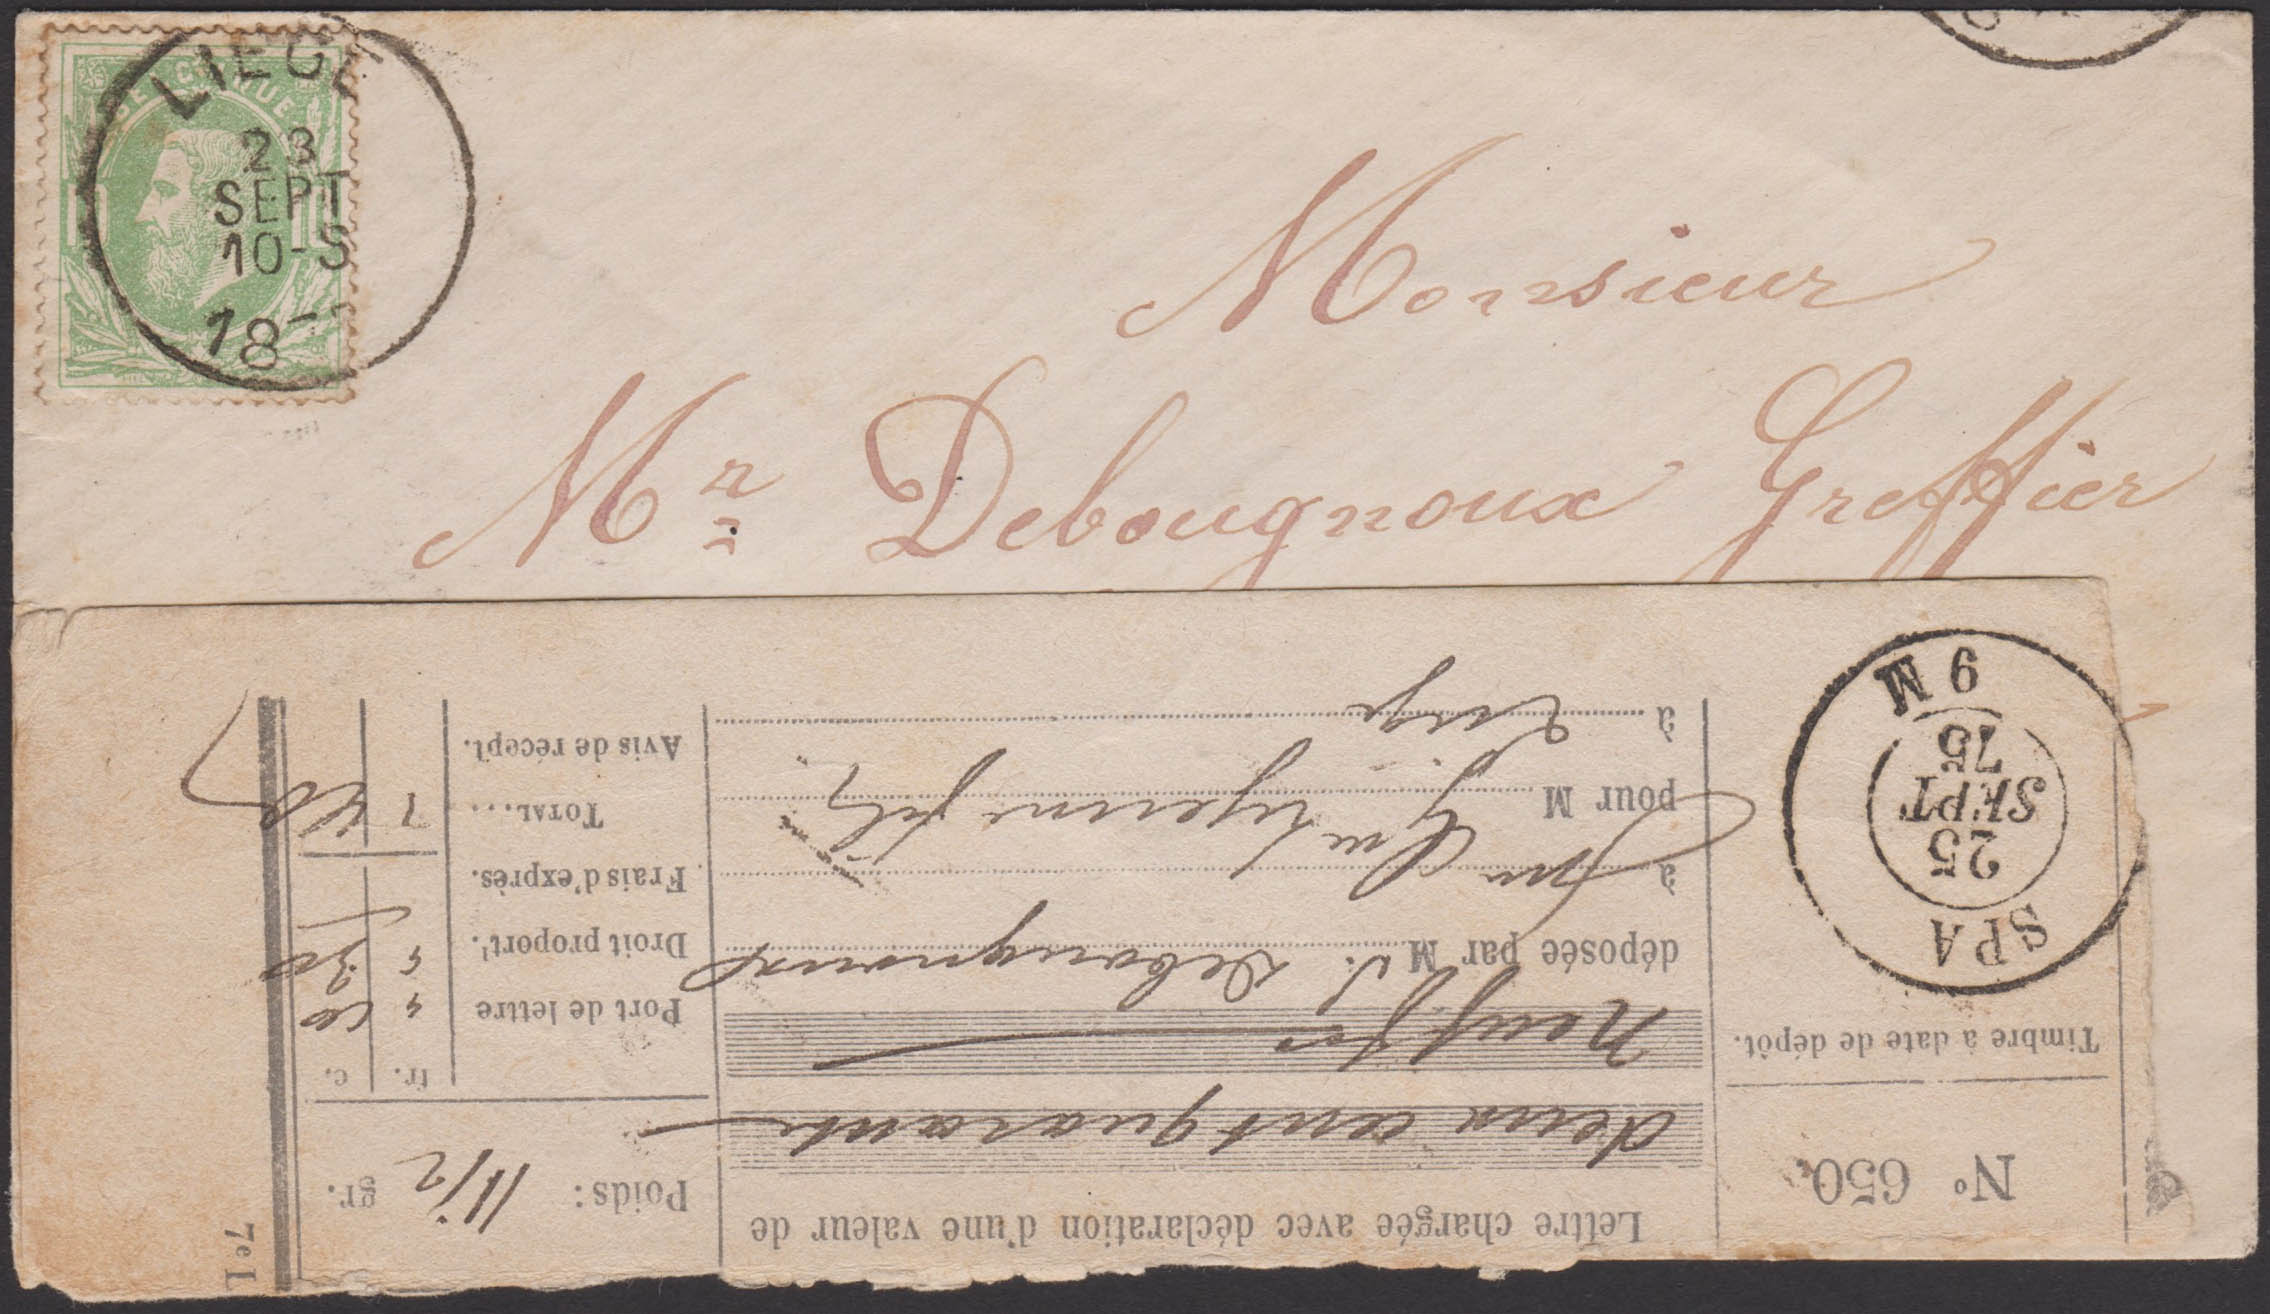 BELGIQUE
LIEGE
23
SEPT
10-S
18
Monsieur
Mr Debougnoux Greffier
No 650.
Timbre à date de dépôt.
SPA
25
SEPT
75
9 M
Lettre chargée avec déclaration d'une valeur de
deux cent quarante
neuf frs
déposée par M J. Debougnoux
à Spa
pour M
à Liège
Poids: 11 1/2 gr.
fr. c.
Port de lettre
Droit proport'. 30
Frais d'exprès.
TOTAL...
Avis de récept.
7e L